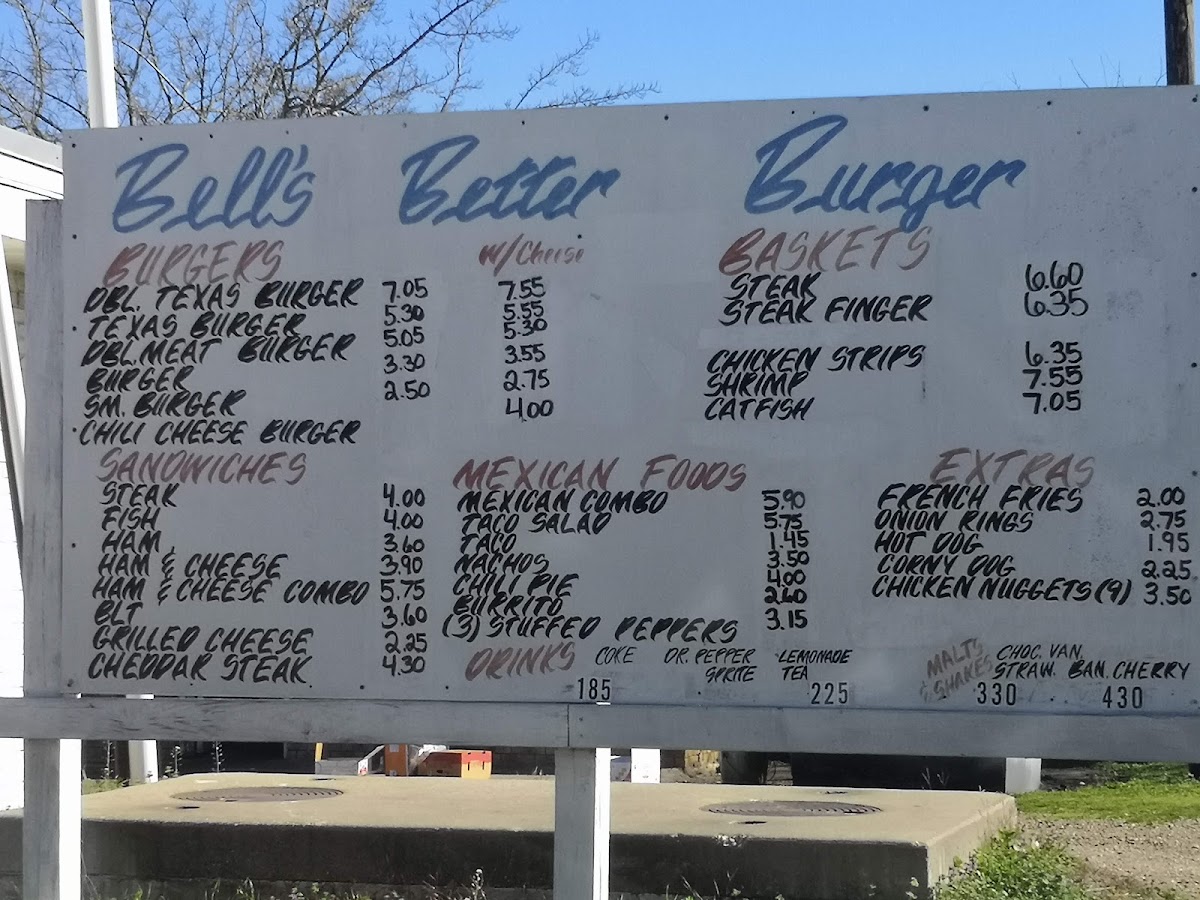 Bell's Better Burger
BURGERS w/Cheese
DBL. TEXAS BURGER 7.05 7.55
TEXAS BURGER 5.30 5.55
DBL. MEAT BURGER 5.05 5.30
BURGER 3.30 3.55
SM. BURGER 2.50 2.75
CHILI CHEESE BURGER 4.00
BASKETS
STEAK 6.60
STEAK FINGER 6.35
CHICKEN STRIPS 6.35
SHRIMP 7.55
CATFISH 7.05
SANDWICHES
STEAK 4.00
FISH 4.00
HAM 3.60
HAM & CHEESE 3.90
HAM & CHEESE COMBO 5.75
BLT 3.60
GRILLED CHEESE 2.25
CHEDDAR STEAK 4.30
MEXICAN FOODS
MEXICAN COMBO 5.90
TACO SALAD 5.75
TACO 1.45
NACHOS 3.50
CHILI PIE 4.00
BURRITO 2.60
(3) STUFFED PEPPERS 3.15
EXTRAS
FRENCH FRIES 2.00
ONION RINGS 2.75
HOT DOG 1.95
CORNY DOG 2.25
CHICKEN NUGGETS (9) 3.50
DRINKS COKE DR. PEPPER LEMONADE
SPRITE TEA
185 225
MALTS CHOC. VAN.
& SHAKES STRAW. BAN. CHERRY
330 430